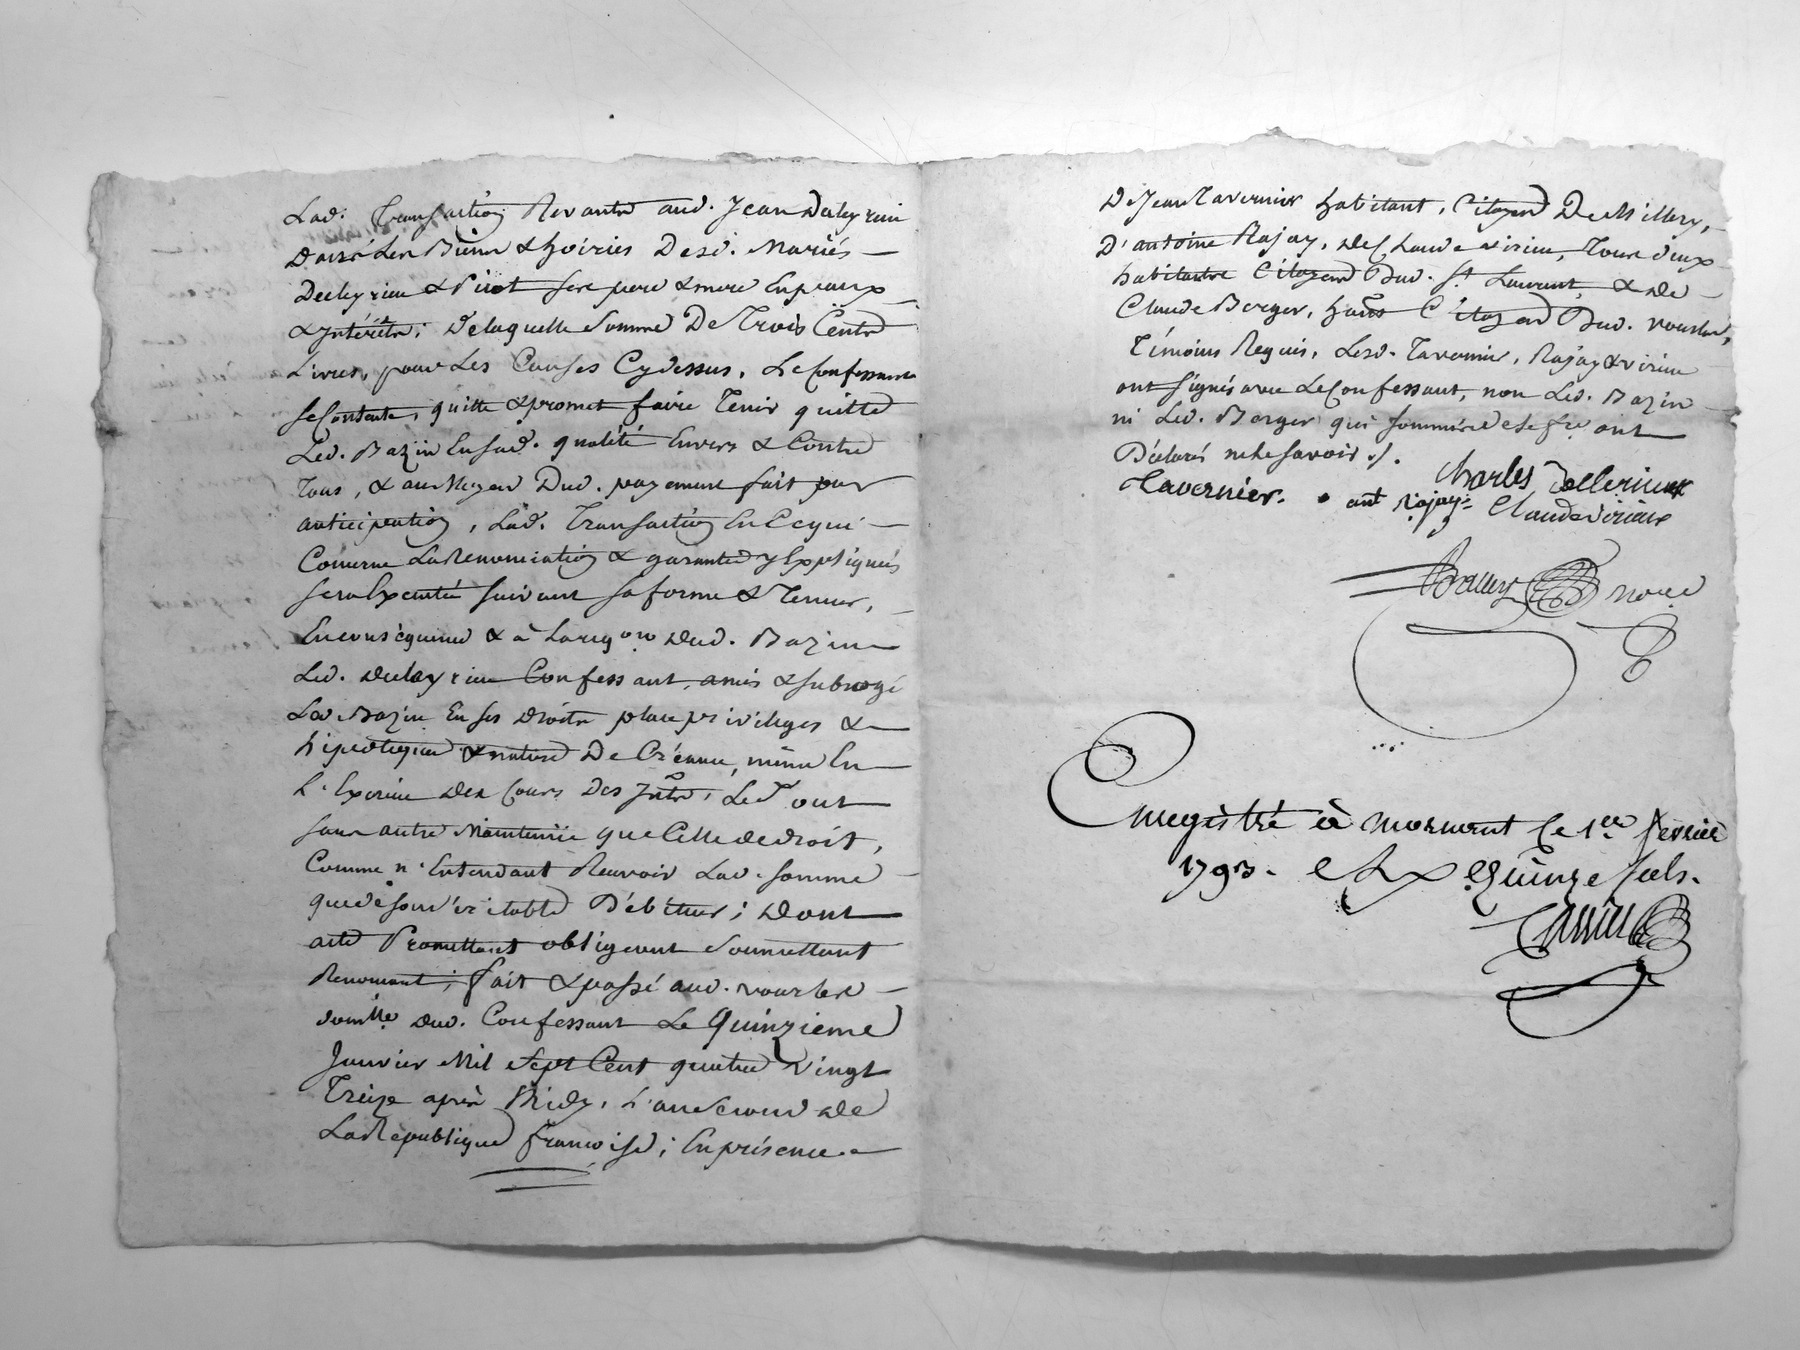 Lad. Transaction Revante aud. Jean Deleyrieu
Dans Les Biens & hoiries Desd. Mariés
Deleyrieu & Pirot ses pere & mere En
& Intérêts; De laquelle somme De Trois Cents
Livres, pour Les Causes Cydessus, Le Confessant
se Contente, quitte & promet faire Tenir quitte
Led. Bazin En sad. qualité Envers & Contre
Tous, & au Moyen Dud. payement fait par
anticipation, Lad. Transaction En Ce qui
Concerne La Renonciation & garantie y Expliqués
sera Exécutée suivant sa forme & Teneur,
En conséquence & à La Dud. Bazin
Led. Deleyrieu Confessant, a mis & subrogé
Led. Bazin En ses Droits place privileges &
hipoteques & nature De Créance, même En
L'Exercice Des Cours Des Intts, Led. tout
sans autre Maintenüe que Celle de droit,
Comme n'Entendant Recevoir Lad. somme
que de son véritable Débiteur; Dont
acte Promettant obligeant soumettant
Renonçant; fait & passé aud. vourles
domlle dud. Confessant Le Quinzieme
Janvier Mil Sept Cent quatre vingt
Treize après Midy, L'an second de
La République françoise; En présence
De Jean Tavernier habitant, Citoyen De Millery,
D'antoine Rajay, De Claude virieu, Tous deux
habitants Citoyens Dud. St. Laurent, & de
Claude Berger, hant Citoyen Dud. vourles,
Témoins Requis, Lesd. Tavernier, Rajay & virieu
ont signés avec Le Confessant, non Led. Bazin
ni Led. Berger qui sommés de le fre. ont
Déclarés ne le savoir ./.
Charles Dellerieux
Tavernier. ant Rajay. Claude virieux
nore
Enregistré à mornant le 1er. fevrier
1793. Quinze sols.